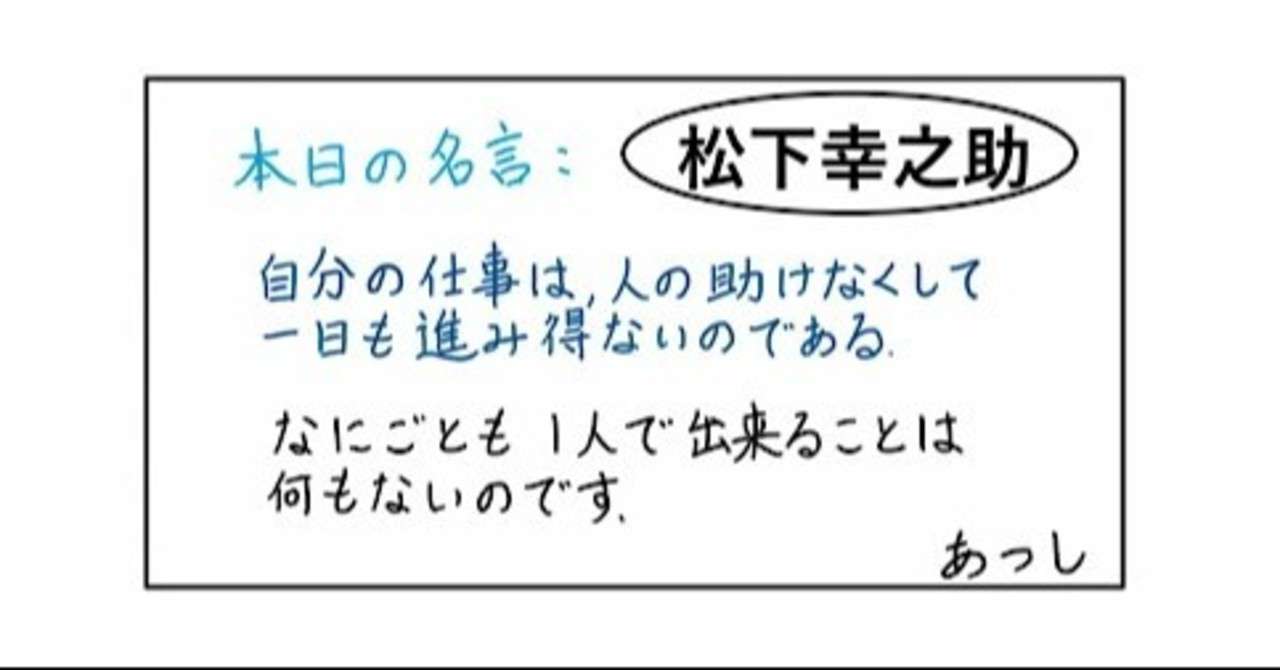 本日の名言: 松下幸之助
自分の仕事は,人の助けなくして
一日も進み得ないのである.
なにごとも1人で出来ることは
何もないのです.
あっし